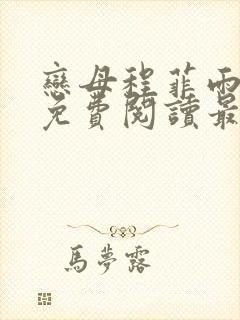 戀母程菲雨
免費閱讀最
馬夢露